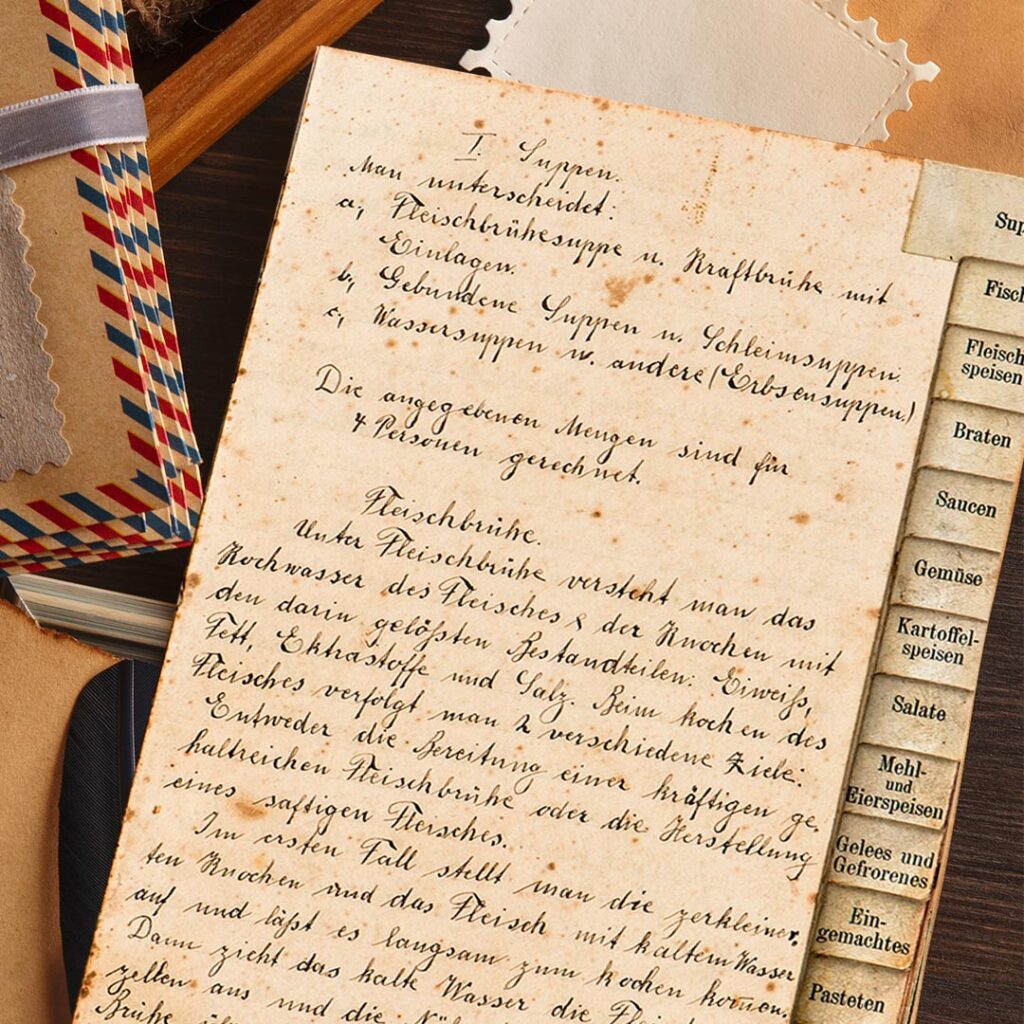 I. Suppen.
Man unterscheidet:
a, Fleischbrühesuppe u. Kraftbrühe mit
Einlagen.
b, Gebundene Suppen u. Schleimsuppen.
c, Wassersuppen u. andere (Erbsensuppen.)
Die angegebenen Mengen sind für
4 Personen gerechnet.
Fleischbrühe.
Unter Fleischbrühe versteht man das
Kochwasser des Fleisches & der Knochen mit
den darin gelößten Bestandteilen: Eiweiß,
Fett, Ektrastoffe und Salz. Beim kochen des
Fleisches verfolgt man 2 verschiedene Ziele:
Entweder die Bereitung einer kräftigen ge.
haltreichen Fleischbrühe oder die Herstellung
eines saftigen Fleisches.
Im ersten Fall stellt man die zerkleiner.
ten Knochen und das Fleisch mit kaltem Wasser
auf und läßt es langsam zum kochen kommen.
Dann zieht das kalte Wasser die
zellen aus und die
Brühe
Sup
Fisch
Fleisch
speisen
Braten
Saucen
Gemüse
Kartoffel-
speisen
Salate
Mehl-
und
Eierspeisen
Gelees und
Gefrorenes
Ein-
gemachtes
Pasteten